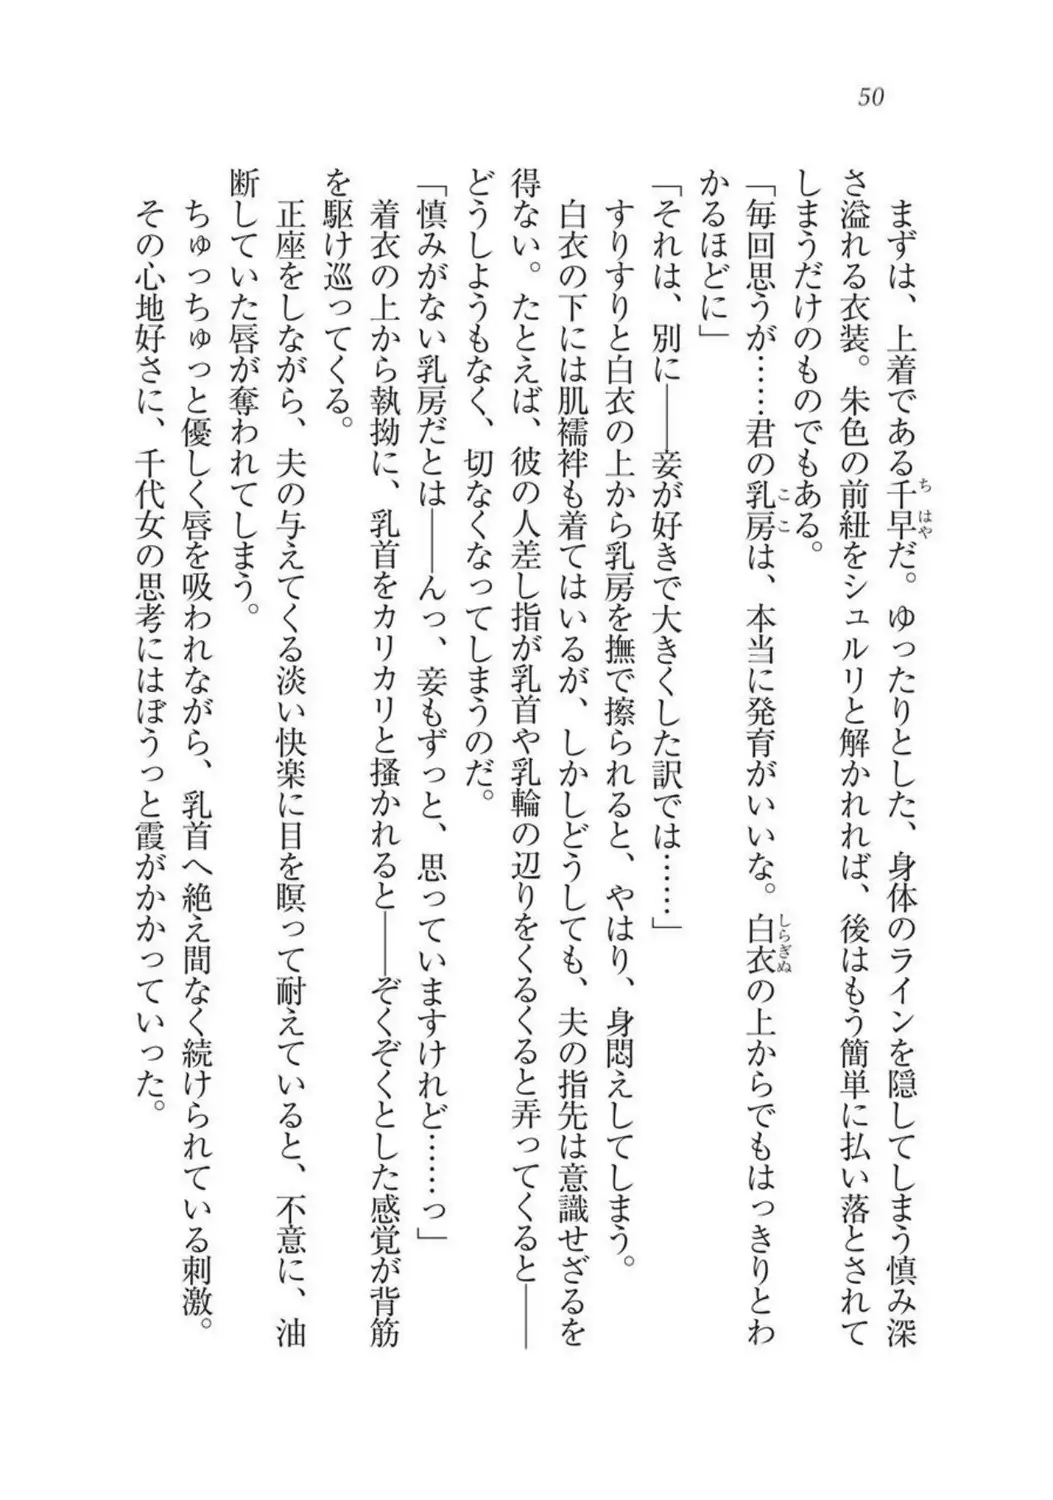 50
まずは、上着である千早だ。ゆったりとした、身体のラインを隠してしまう慎み深
ちはや
さ溢れる衣装。朱色の前紐をシュルリと解かれれば、後はもう簡単に払い落とされて
しまうだけのものでもある。
「毎回思うが……君の乳房は、本当に発育がいいな。白衣の上からでもはっきりとわ
ここ
しらぎぬ
かるほどに」
「それは、別に――妾が好きで大きくした訳では……」
すりすりと白衣の上から乳房を撫で擦られると、やはり、身悶えしてしまう。
白衣の下には肌襦袢も着てはいるが、しかしどうしても、夫の指先は意識せざるを
得ない。たとえば、彼の人差し指が乳首や乳輪の辺りをくるくると弄ってくると――
どうしようもなく、切なくなってしまうのだ。
「慎みがない乳房だとは――んっ、妾もずっと、思っていますけれど……っ」
着衣の上から執拗に、乳首をカリカリと掻かれると――ぞくぞくとした感覚が背筋
を駆け巡ってくる。
正座をしながら、夫の与えてくる淡い快楽に目を瞑って耐えていると、不意に、油
断していた唇が奪われてしまう。
ちゅっちゅっと優しく唇を吸われながら、乳首へ絶え間なく続けられている刺激。
その心地好さに、千代女の思考にはぼうっと霞がかかっていった。